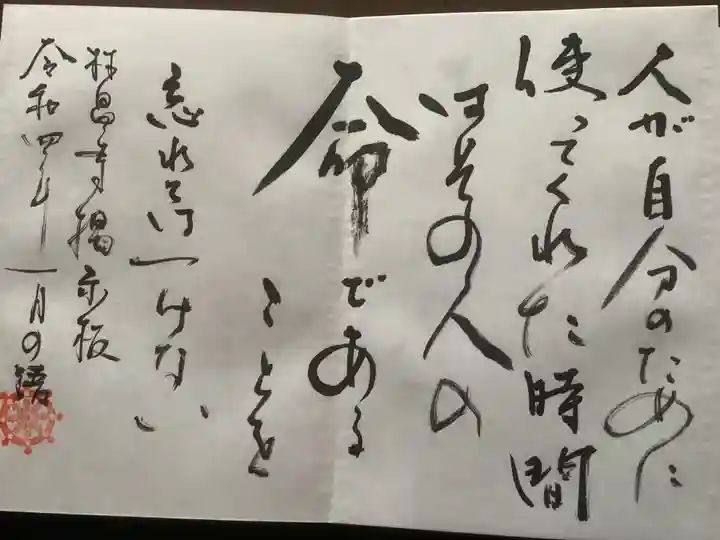 人が自分のために
使ってくれた時間
はその人の
命である
ことを
忘れてはいけない
林昌寺掲示板
令和四年一月の譜